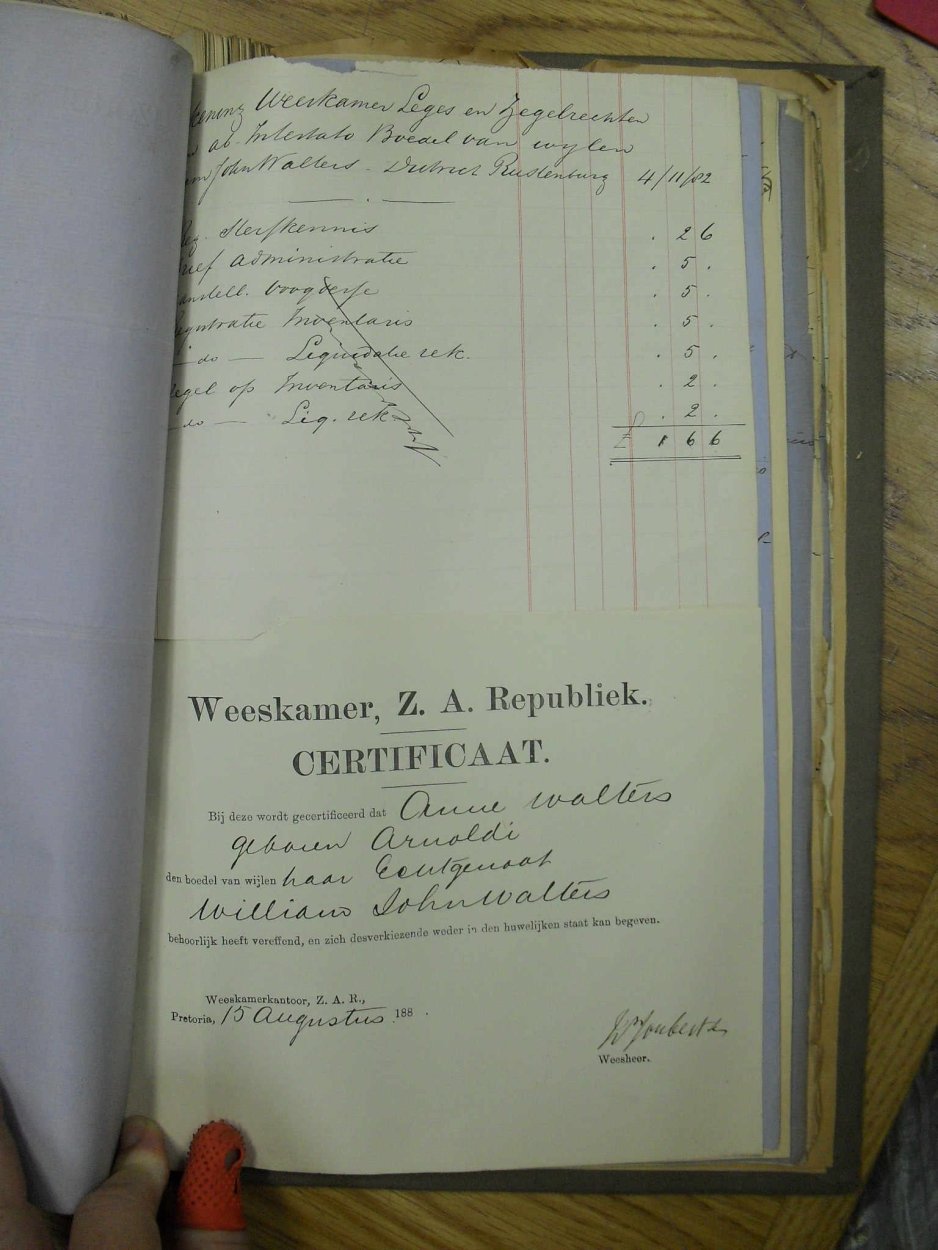 Weeskamer Leges en Zegelrechten
ab Intestato Boedel van wylen
John Walters - District Rustenburg 4/11/82
Sterfkennis . 2 6
Administratie . 5 .
. 5 .
Inventaris . 5 .
— do — Liquidatie rek. . 5 .
op Inventaris . 2 .
— do — Liq. rek . 2 .
£ 1 6 6
Weeskamer, Z. A. Republiek.
CERTIFICAAT.
Bij deze wordt gecertificeerd dat Anne Walters
geboren Arnoldi
den boedel van wijlen haar Echtgenoot
William John Walters
behoorlijk heeft vereffend, en zich desverkiezende weder in den huwelijken staat kan begeven.
Weeskamerkantoor, Z. A. R.,
Pretoria, 15 Augustus 188 .
Joubert
Weesheer.